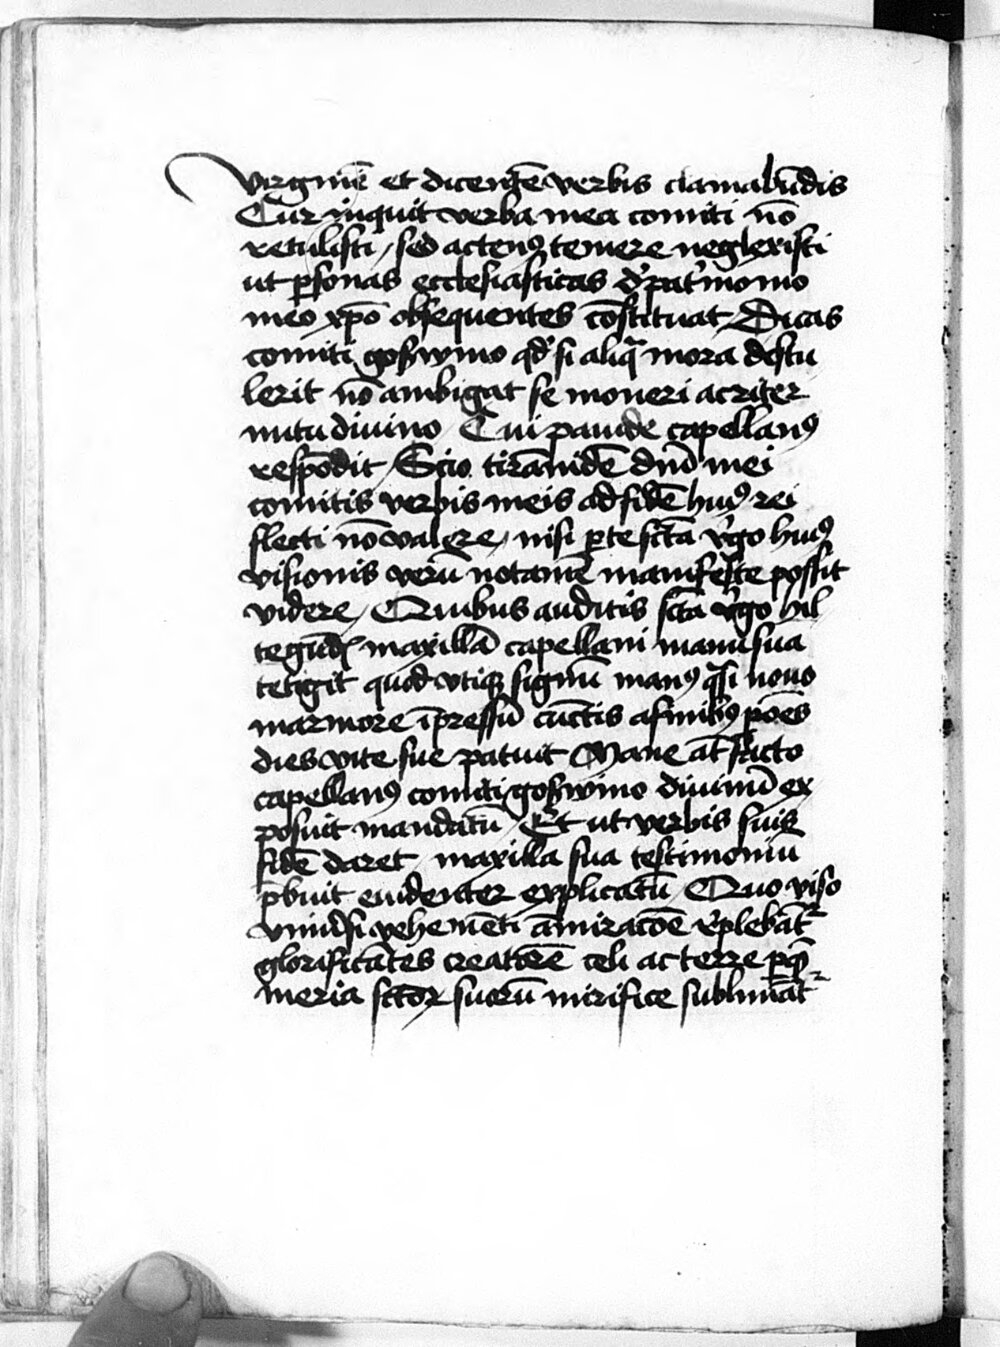 virginē et dicentē verbis clamabūdis
Cur inquit verba mea comiti nō
retulisti / sed actenꝰ temere neglexisti
ut ꝑsonas ecclesiasticas d' pat'monio
meo xp̄o obsequentes cōstituat / Dicas
comiti goswino qd' si aliqͣ mora distu
lerit nō ambigat se moneri acriter
nutu diuino Cui pauide capellanꝰ
respōdit / Scio tirānidē dn̄i mei
comitis verbis meis ad fidē huiꝰ rei
flecti nō valere / nisi per te sct̄a v'go huiꝰ
visionis verū notamē manifeste possit
videre / Quibus auditis sct̄a v'go hil
tegūd' maxillā capellani manu sua
tetigit quod vtiqꝫ signū manꝰ qͣsi nouo
marmore īpressū cūctis afinibꝰ ꝑ oēs
dies vite sue patuit Mane at̄ facto
capellanꝰ comiti goswino diuinū ex
posuit mandatū / Et ut verbis suis
fidē daret / maxilla sua testimoniū
p̄buit euidenter explicatū / Quo viso
vniūsi vehemēti āmiracōe r'plebāt᷑
glorificātes creatorē celi ac terre ꝑ qē
meria sctōꝝ suorū mirifice sublimāt᷑